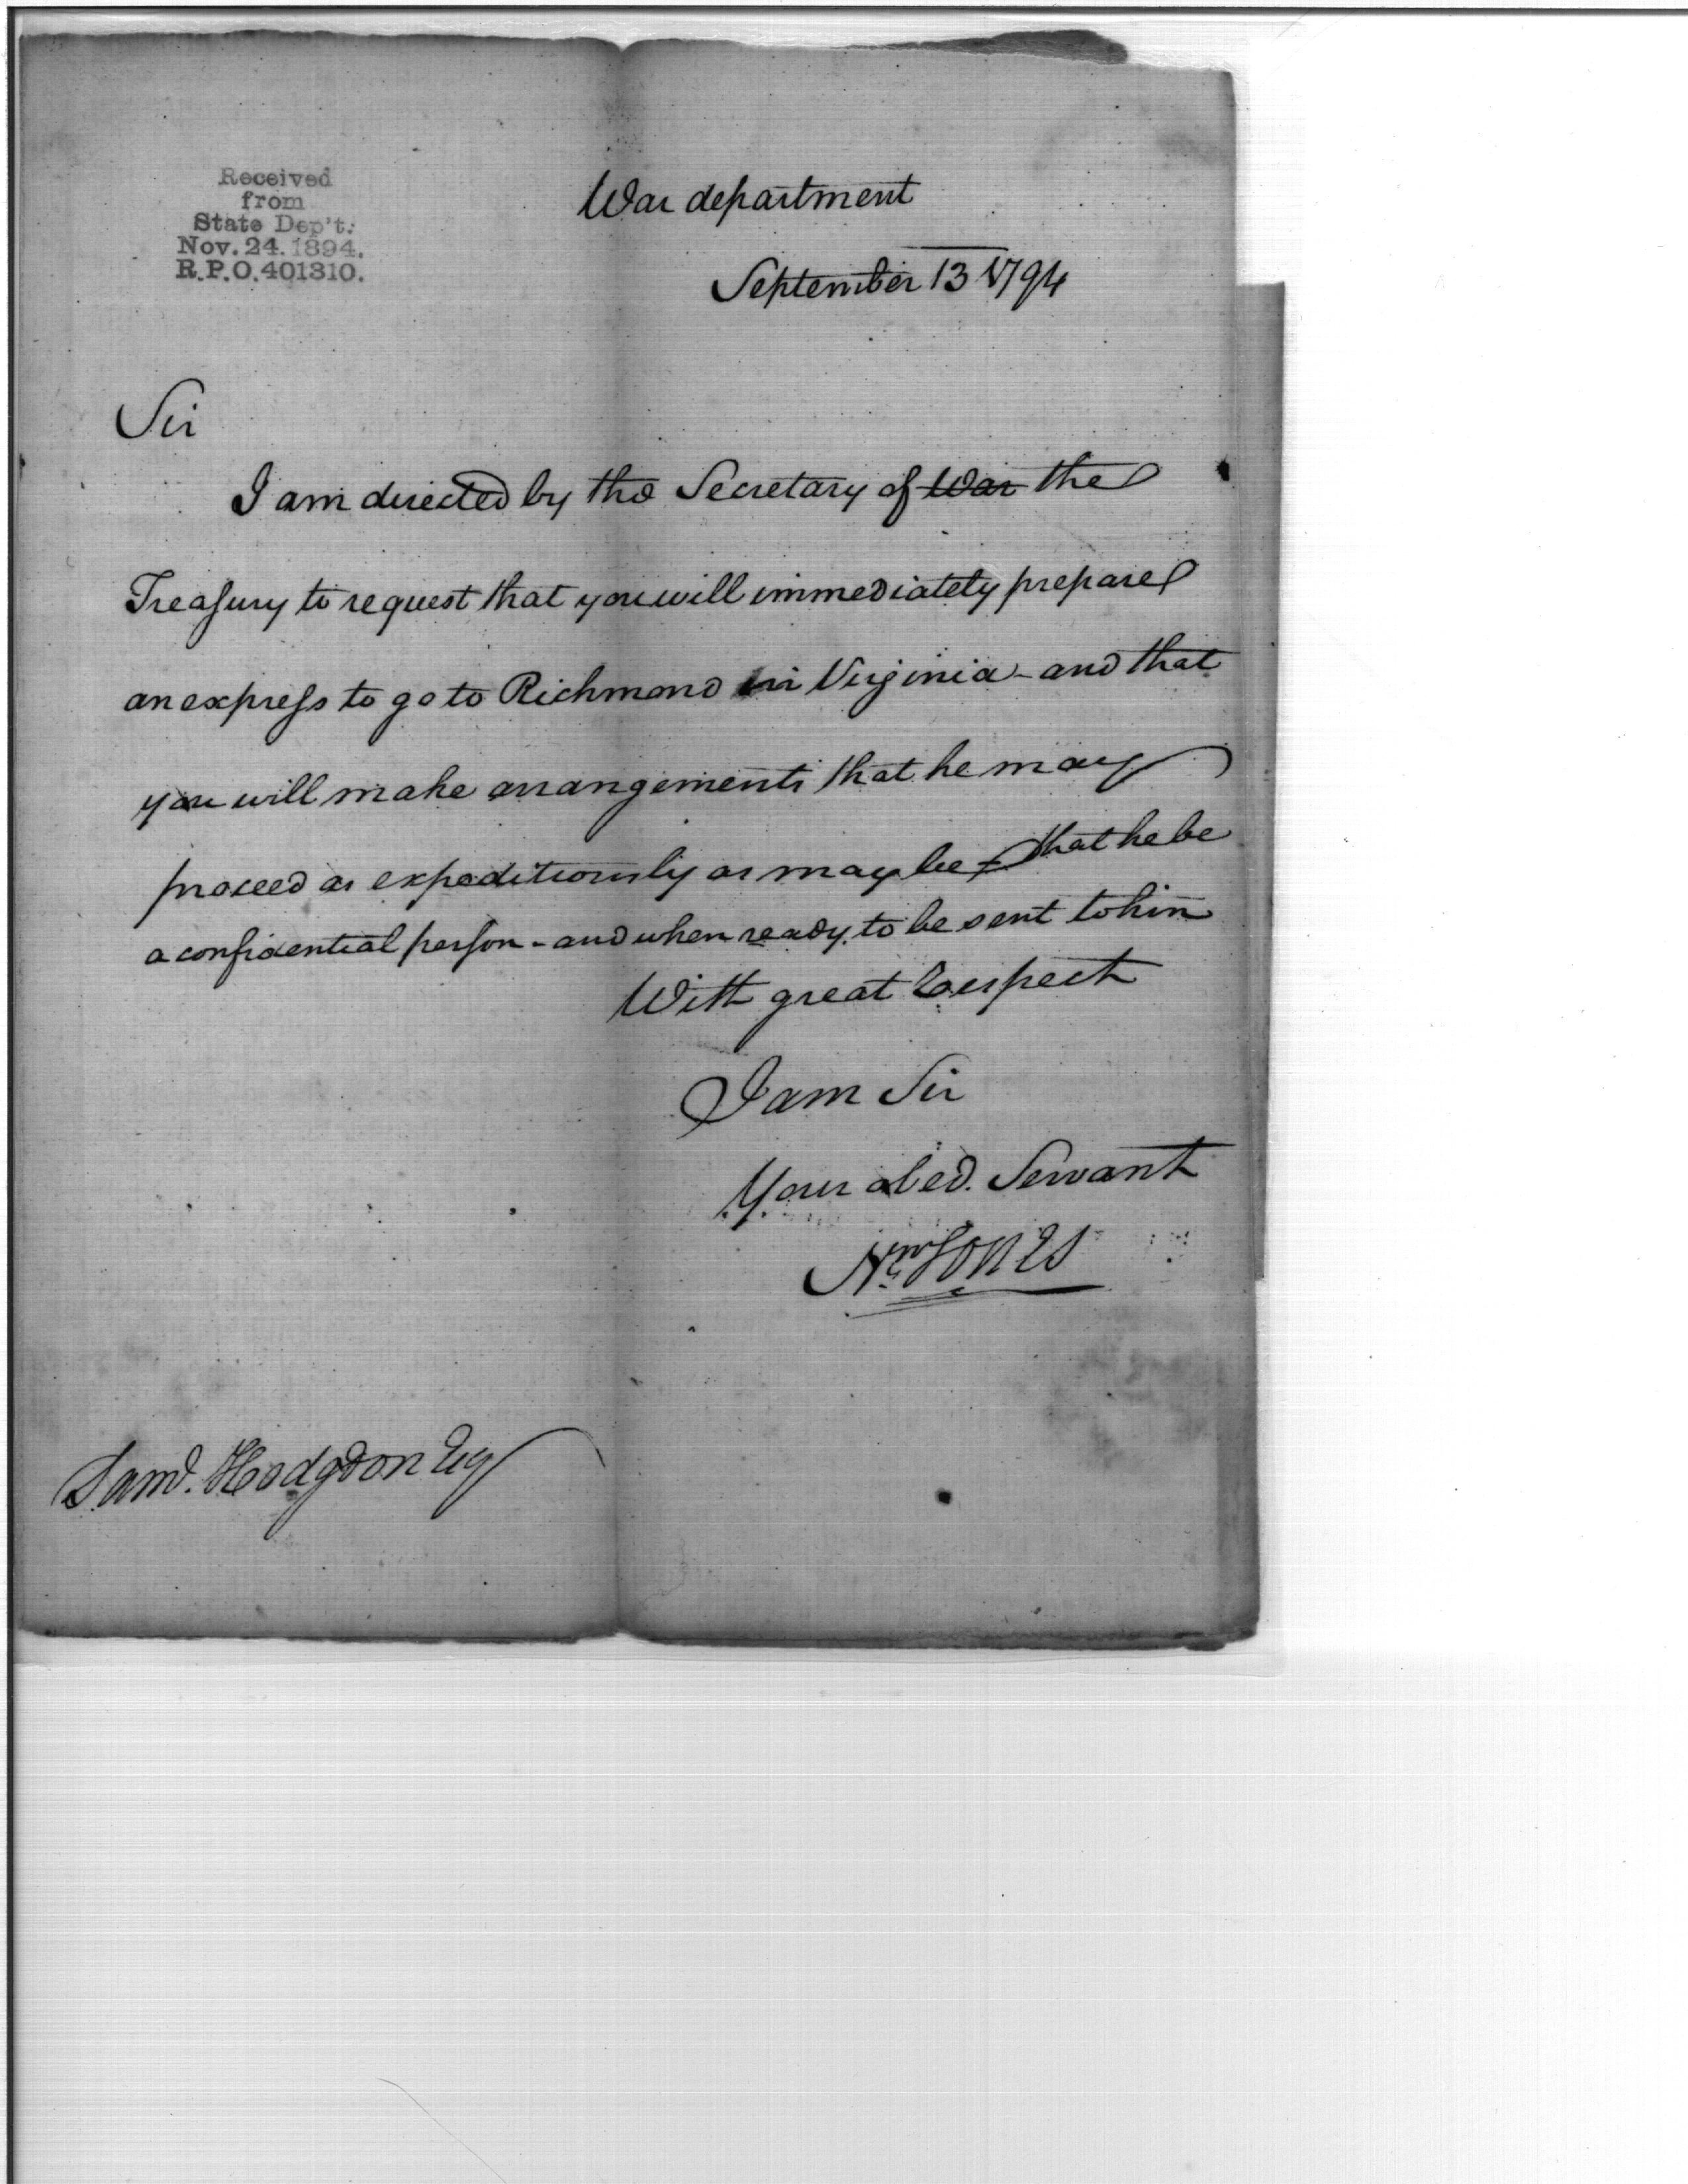 Received
from
State Dep't.
Nov. 24. 1894.
R.P.O. 401310.
War department
September 13 1794
Sir
I am directed by the Secretary of War the
Treasury to request that you will immediately prepare
an express to go to Richmond in Virginia - and that
you will make arrangements that he may
proceed as expeditiously as may be - that he be
a confidential person - and when ready to be sent to him
With great Respect
I am Sir
Your obed. Servant
Jones
Saml. Hodgdon Esq